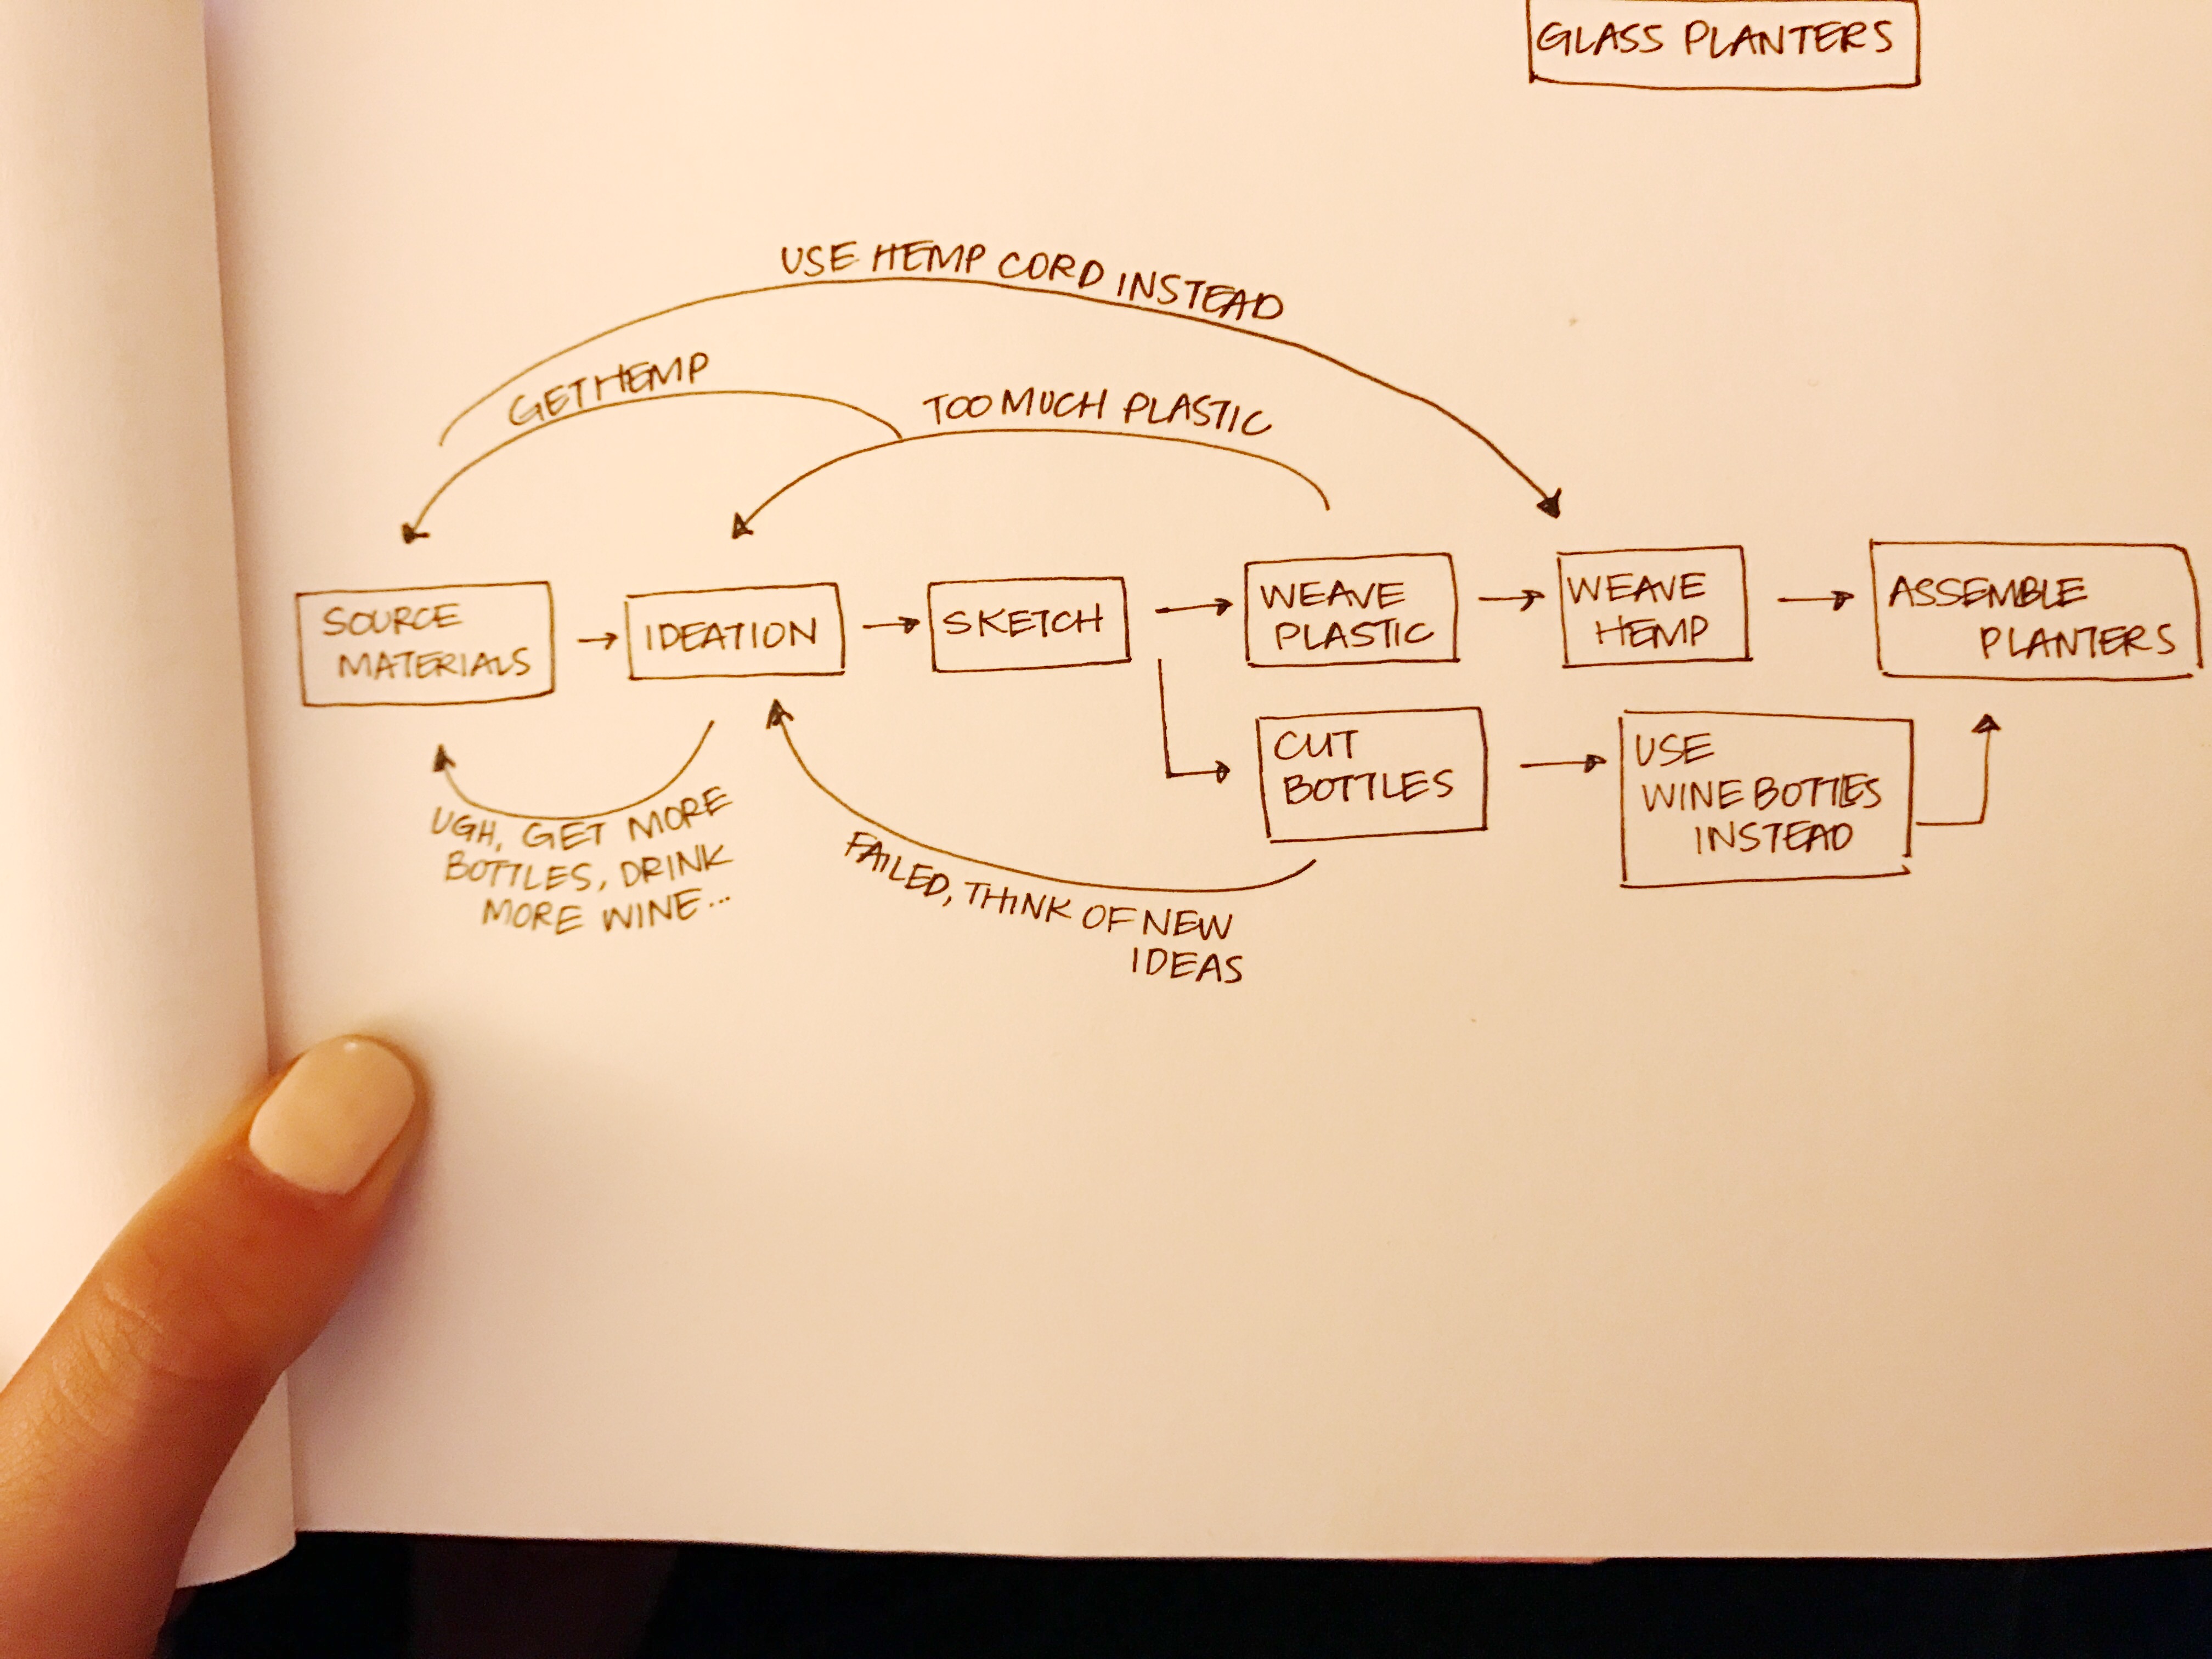 GLASS PLANTERS
USE HEMP CORD INSTEAD
GET HEMP
TOO MUCH PLASTIC
SOURCE
MATERIALS
IDEATION
SKETCH
WEAVE
PLASTIC
WEAVE
HEMP
ASSEMBLE
PLANTERS
CUT
BOTTLES
USE
WINE BOTTLES
INSTEAD
UGH, GET MORE
BOTTLES, DRINK
MORE WINE...
FAILED, THINK OF NEW
IDEAS